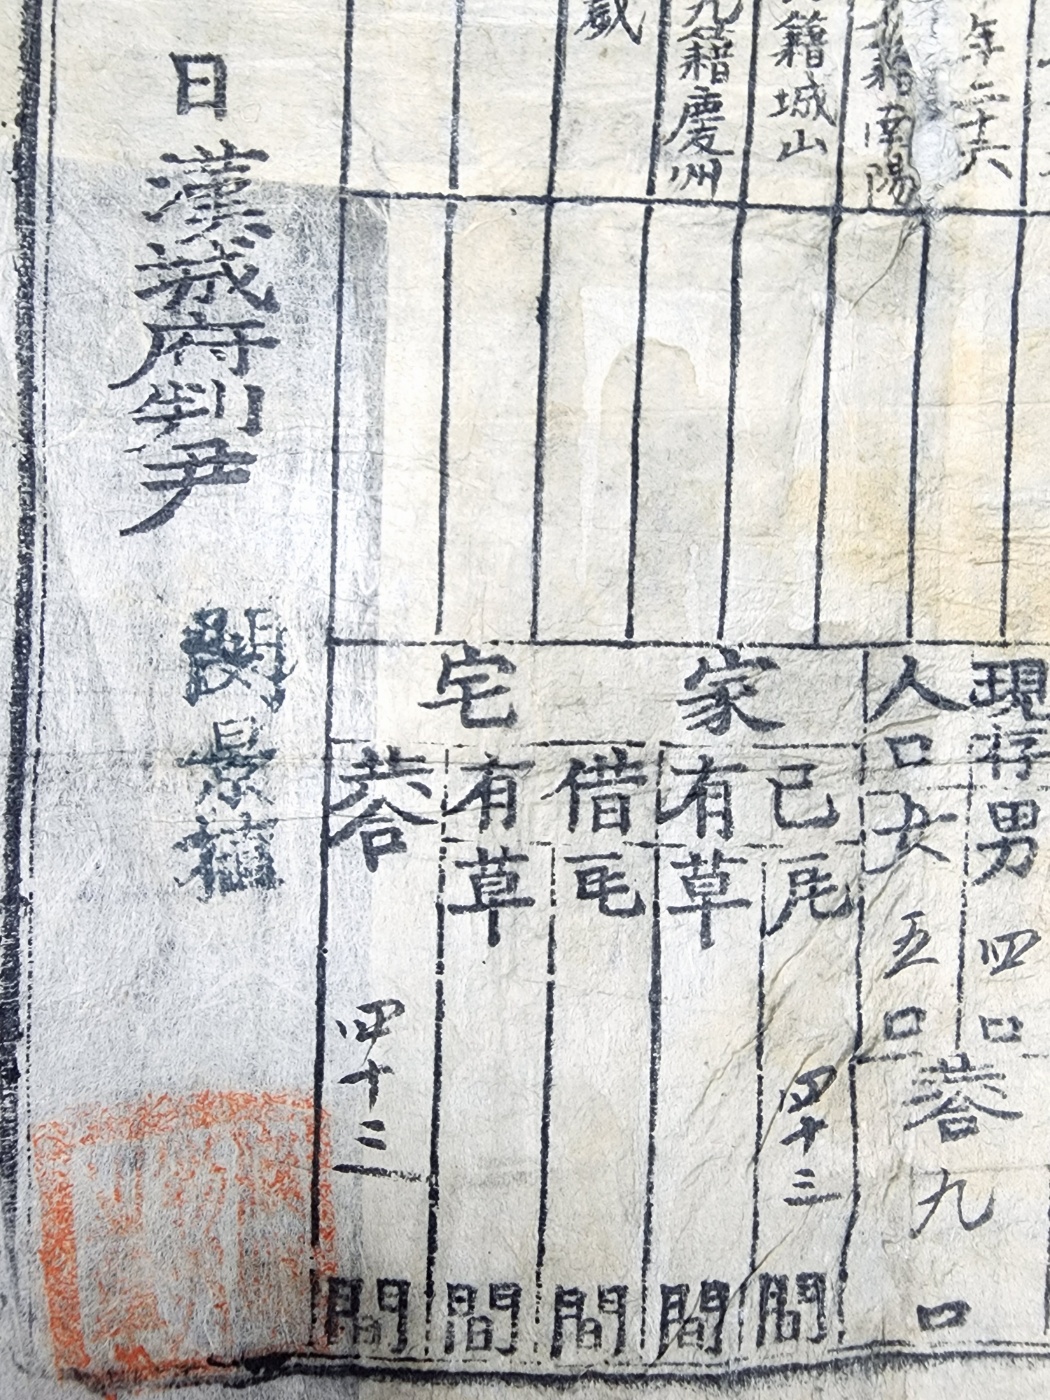 年二十六
籍南陽
籍城山
九籍慶州
歲
現存男四口
人口女五口
共合九口
家宅
己瓦四十三間
有草間
借瓦間
有草間
共合四十三間
日漢城府判尹閔景植